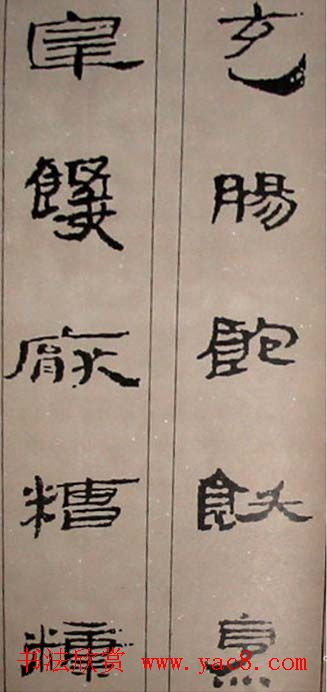 充腸飽飫烹
宰饑厭糟糠
书法欣赏 www.yac8.com